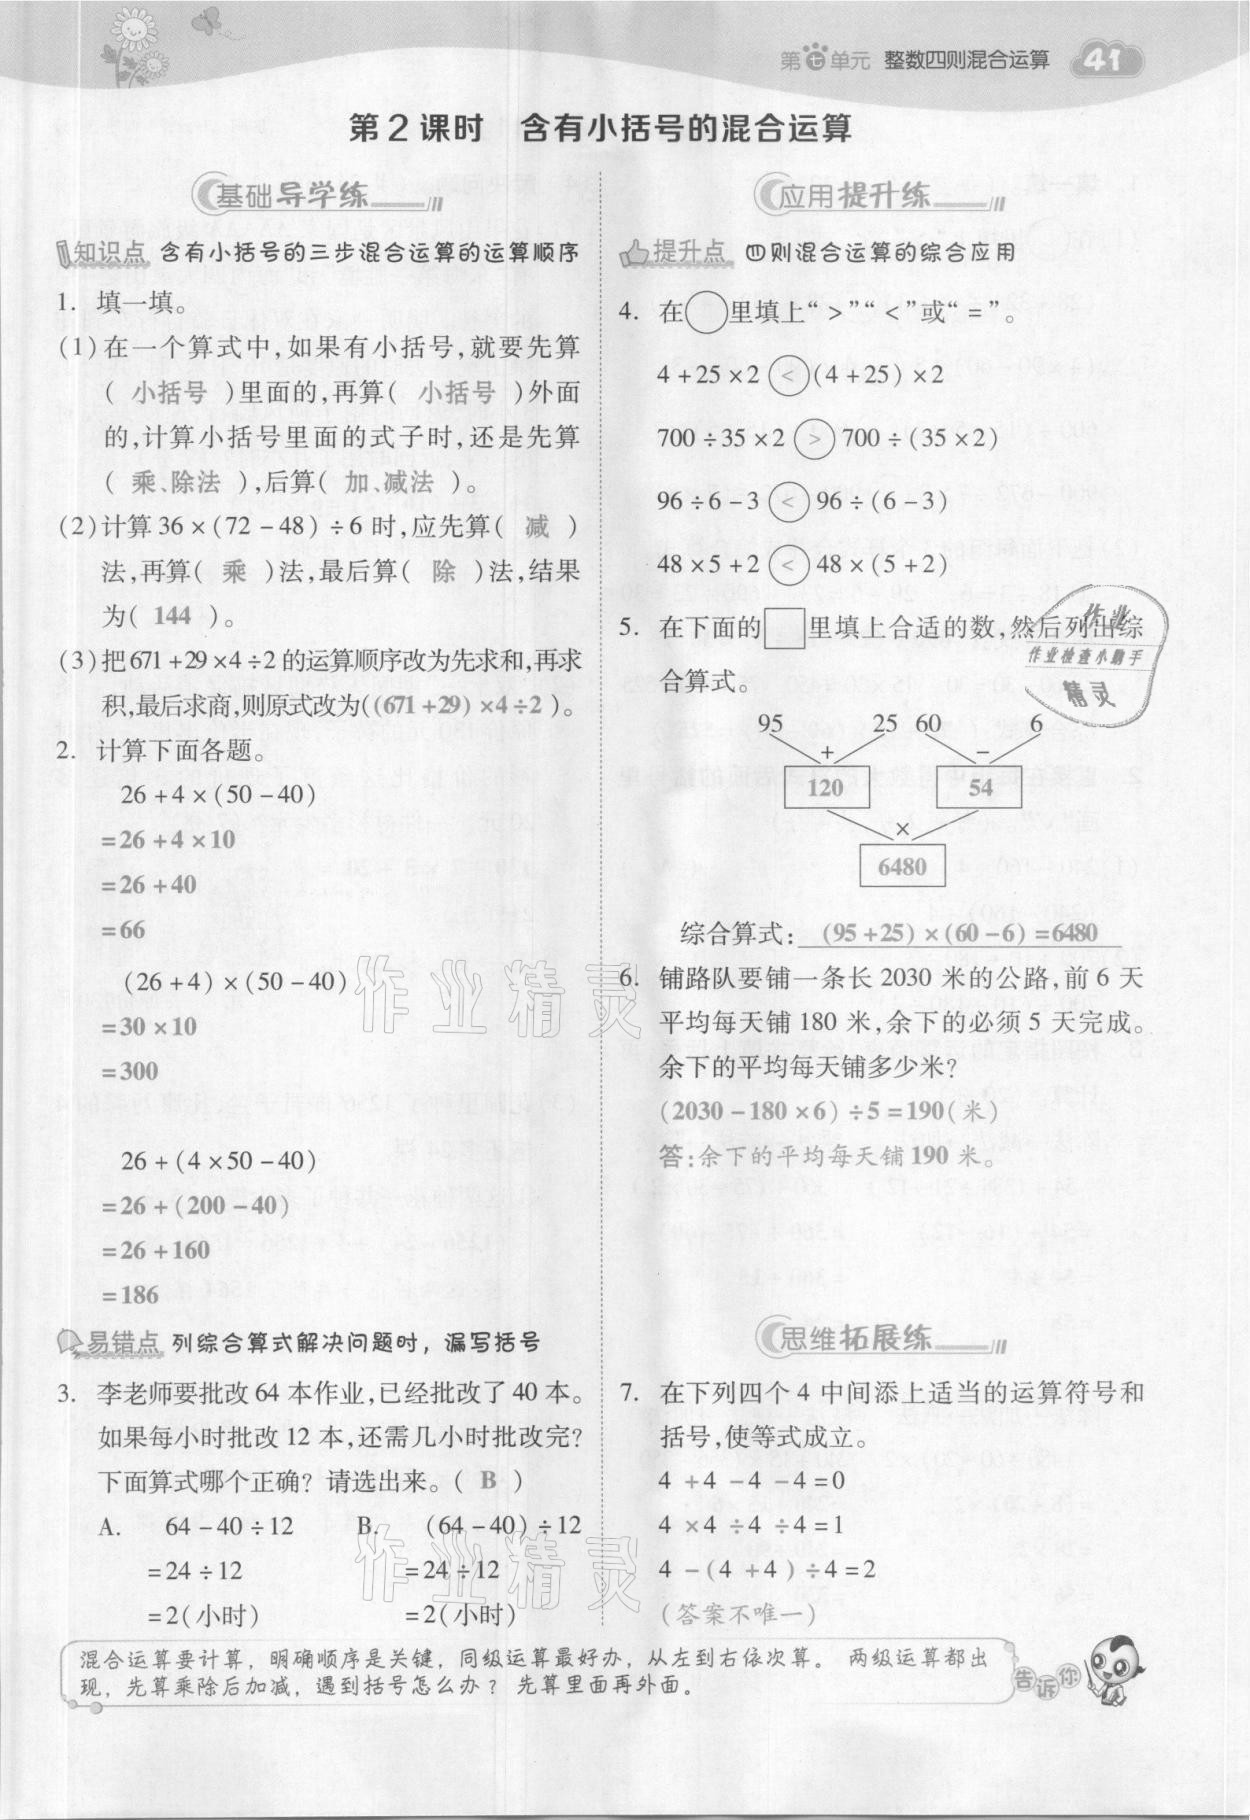 第七单元 整数四则混合运算 41
第2课时 含有小括号的混合运算
基础导学练
知识点 含有小括号的三步混合运算的运算顺序
1. 填一填。
(1)在一个算式中,如果有小括号,就要先算
( 小括号 )里面的,再算( 小括号 )外面
的,计算小括号里面的式子时,还是先算
( 乘、除法 ),后算( 加、减法 )。
(2)计算36×(72-48)÷6时,应先算( 减 )
法,再算( 乘 )法,最后算( 除 )法,结果
为( 144 )。
(3)把671+29×4÷2的运算顺序改为先求和,再求
积,最后求商,则原式改为((671+29)×4÷2)。
2. 计算下面各题。
26+4×(50-40)
=26+4×10
=26+40
=66
(26+4)×(50-40)
=30×10
=300
26+(4×50-40)
=26+(200-40)
=26+160
=186
易错点 列综合算式解决问题时，漏写括号
3. 李老师要批改64本作业,已经批改了40本。
如果每小时批改12本,还需几小时批改完?
下面算式哪个正确? 请选出来。( B )
A. 64-40÷12 B. (64-40)÷12
=24÷12 =24÷12
=2(小时) =2(小时)
应用提升练
提升点 四则混合运算的综合应用
4. 在○里填上“>”“<”或“=”。
4+25×2<(4+25)×2
700÷35×2>700÷(35×2)
96÷6-3<96÷(6-3)
48×5+2<48×(5+2)
5. 在下面的□里填上合适的数,然后列出综
合算式。
95 25 60 6
+ -
120 54
×
6480
综合算式: (95+25)×(60-6)=6480
6. 铺路队要铺一条长2030米的公路,前6天
平均每天铺180米,余下的必须5天完成。
余下的平均每天铺多少米?
(2030-180×6)÷5=190(米)
答:余下的平均每天铺190米。
思维拓展练
7. 在下列四个4中间添上适当的运算符号和
括号,使等式成立。
4+4-4-4=0
4×4÷4÷4=1
4-(4+4)÷4=2
(答案不唯一)
混合运算要计算，明确顺序是关键，同级运算最好办，从左到右依次算。 两级运算都出
现，先算乘除后加减，遇到括号怎么办？ 先算里面再外面。
告诉你
作业
作业检查小助手
精灵
作业精灵
作业精灵